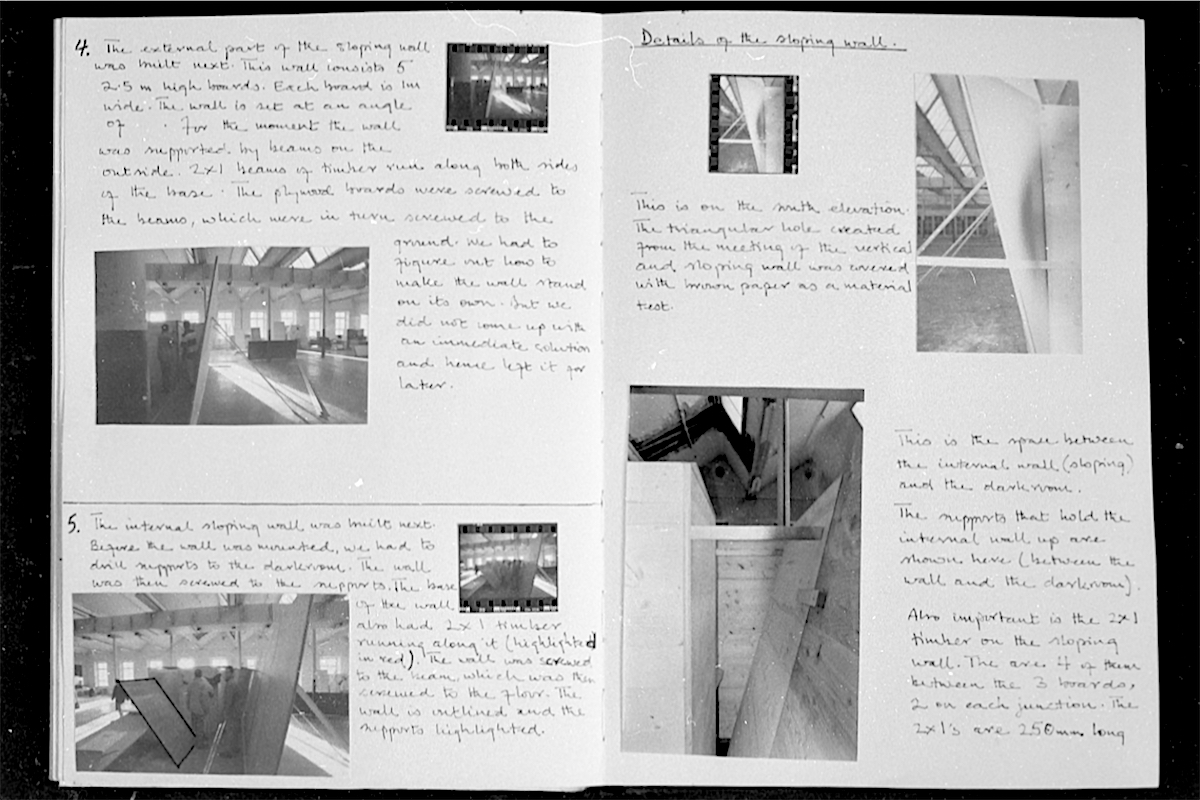 4. The external part of the sloping wall
was built next. This wall consists 5
2.5 m high boards. Each board is 1m
wide. The wall is set at an angle
of . For the moment the wall
was supported by beams on the
outside. 2x1 beams of timber run along both sides
of the base. The plywood boards were screwed to
the beams, which were in turn screwed to the
ground. We had to
figure out how to
make the wall stand
on its own. But we
did not come up with
an immediate solution
and hence left it for
later.
5. The internal sloping wall was built next.
Before the wall was mounted, we had to
drill supports to the darkroom. The wall
was then screwed to the supports. The base
of the wall
also had 2x1 timber
running along it (highlighted
in red). The wall was screwed
to the beam, which was then
screwed to the floor. The
wall is outlined and the
supports highlighted.
Details of the sloping wall.
This is on the south elevation.
The triangular hole created
from the meeting of the vertical
and sloping wall was covered
with brown paper as a material
test.
This is the space between
the internal wall (sloping)
and the darkroom.
The supports that hold the
internal wall up are
shown here (between the
wall and the darkroom).
Also important is the 2x1
timber on the sloping
wall. The are 4 of them
between the 3 boards,
2 on each junction. The
2x1's are 250mm long